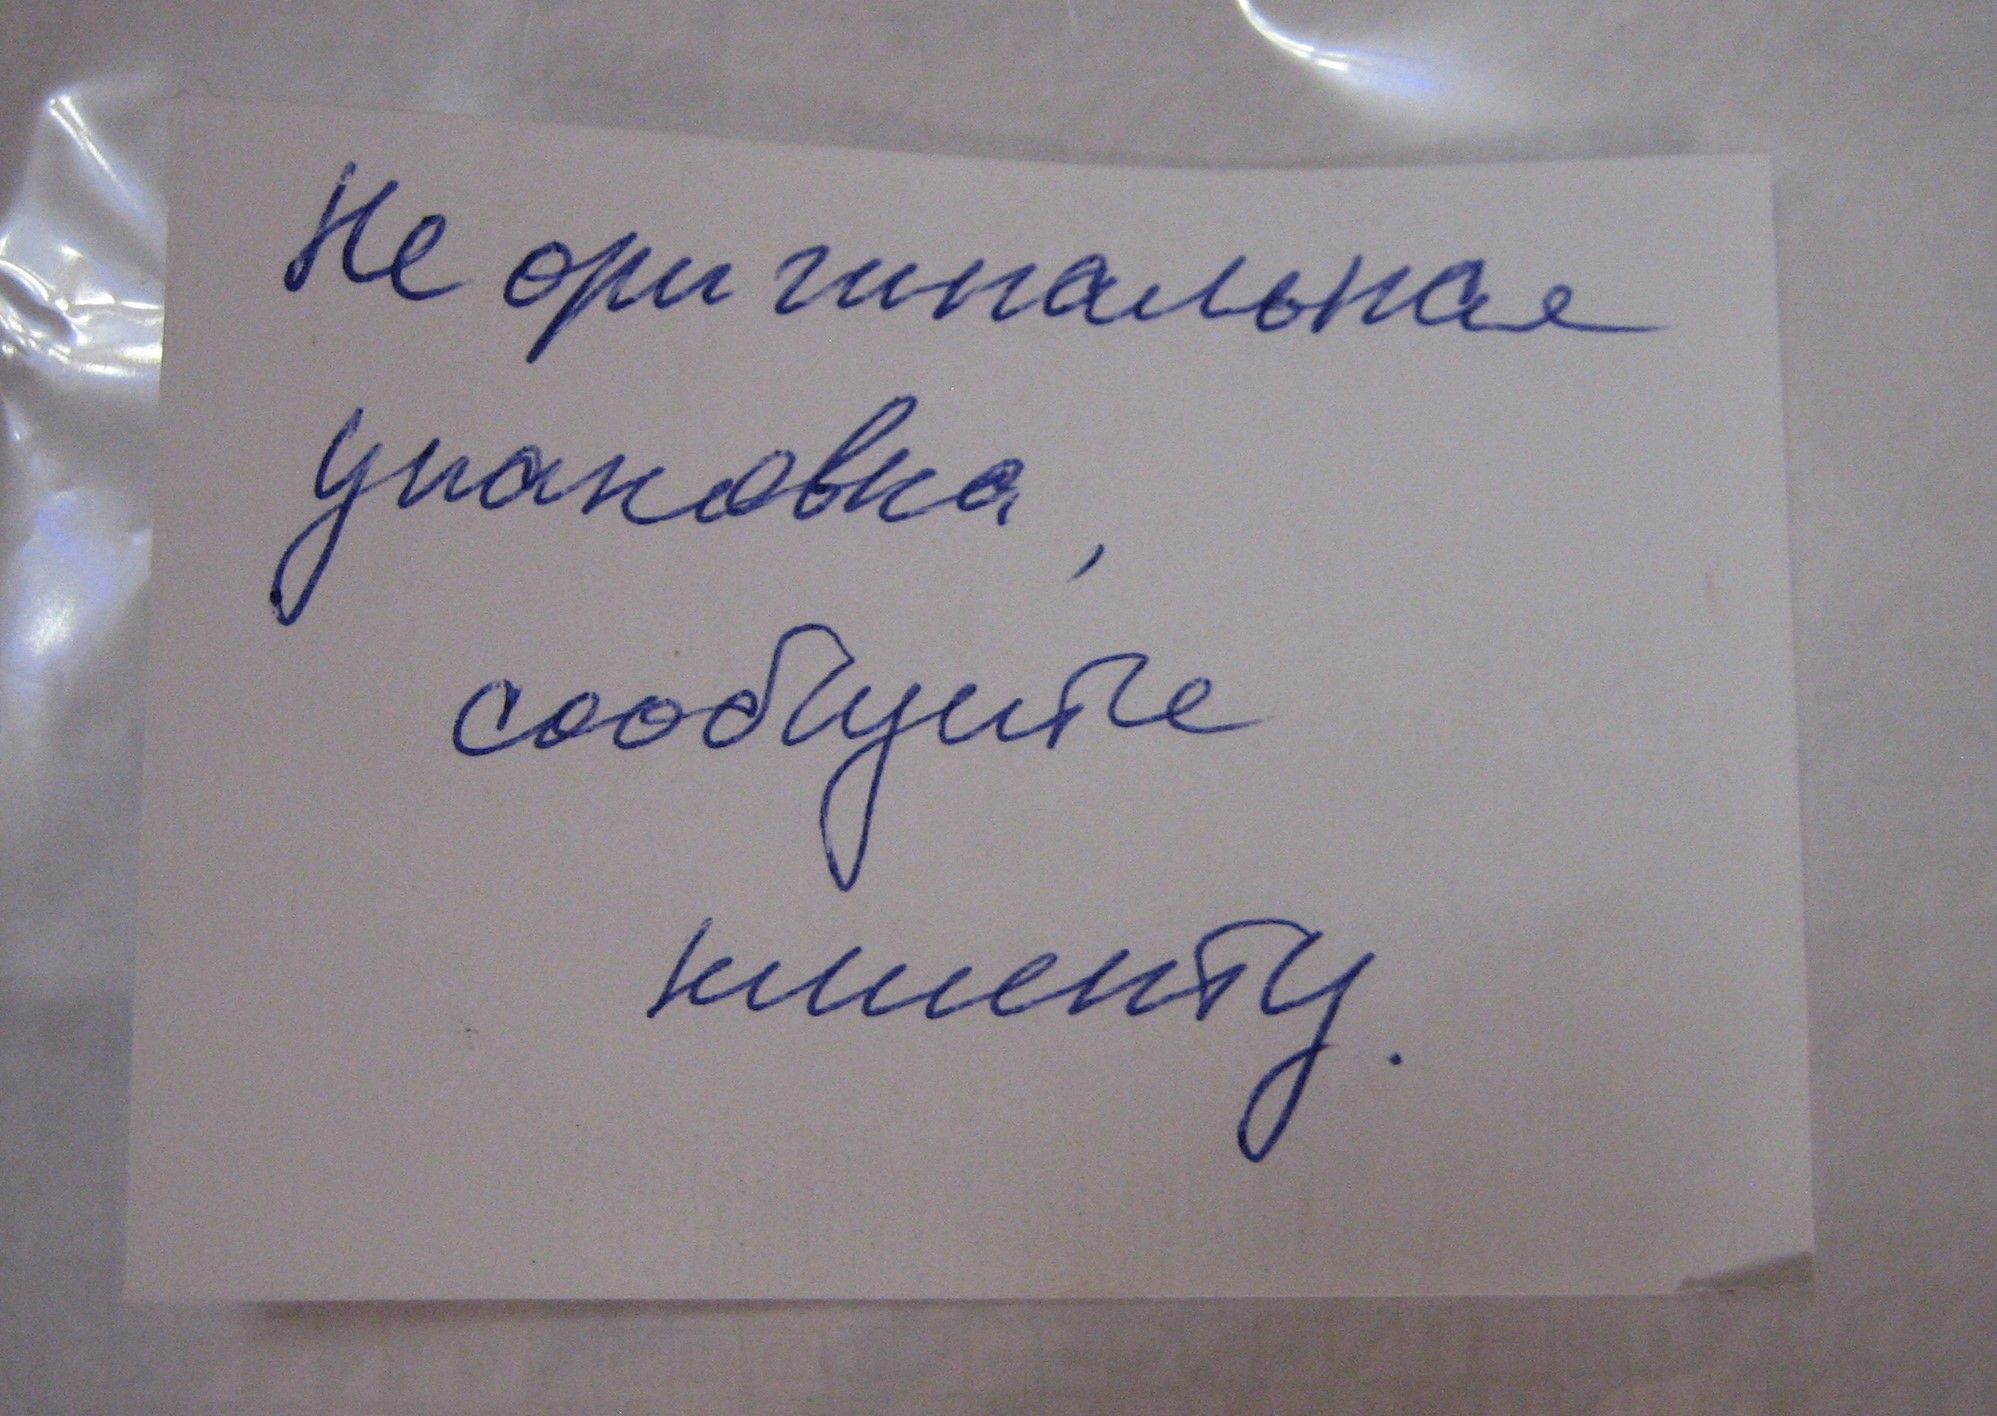 Не оригинальная
упаковка,
сообщите
клиенту.